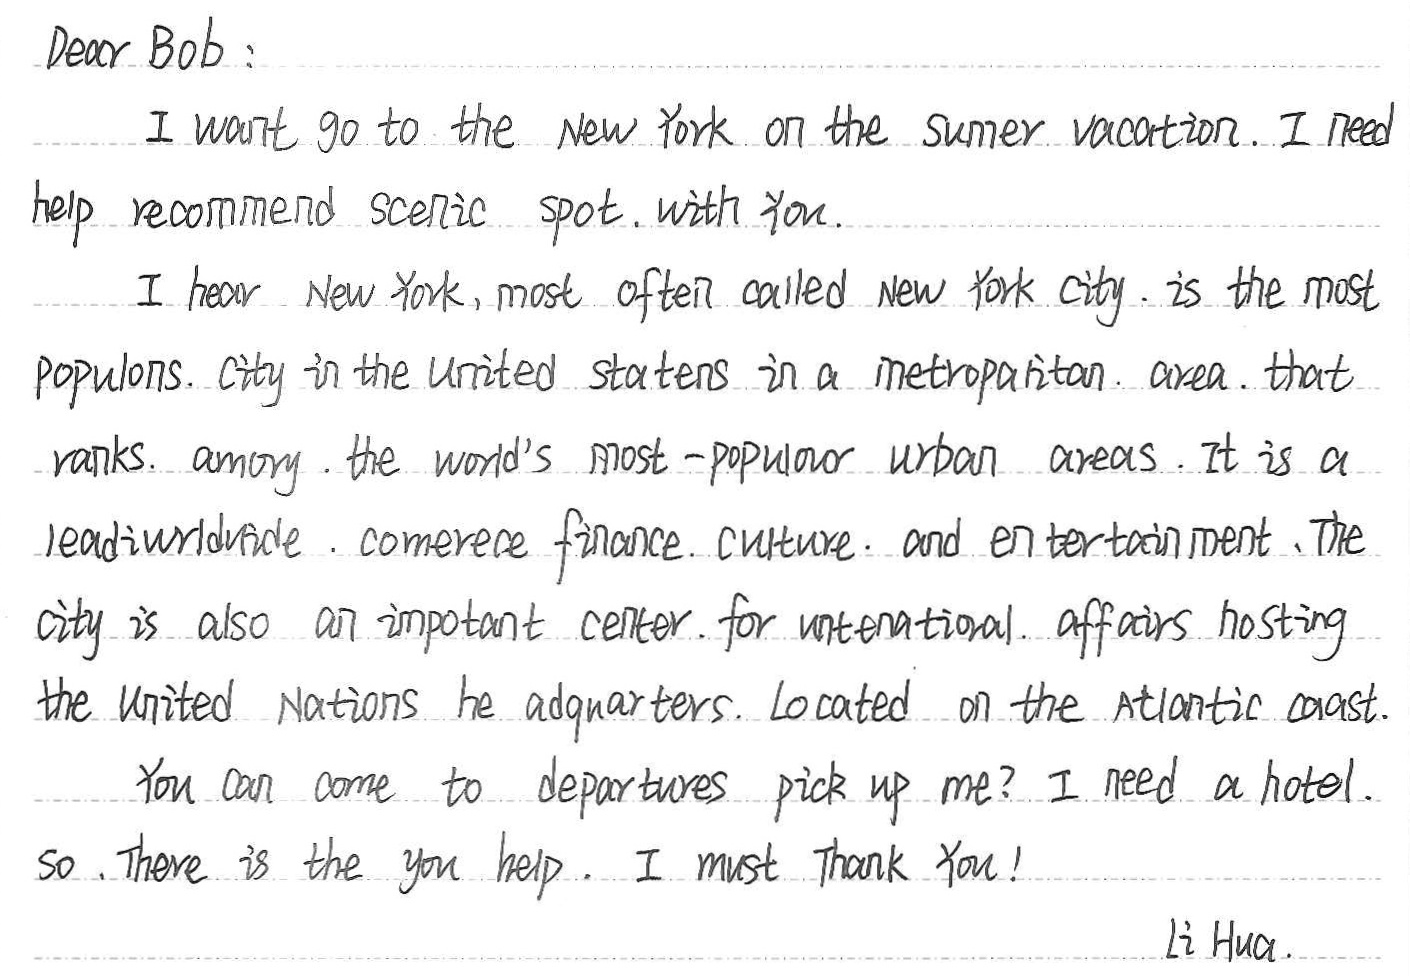 Dear Bob :
I want go to the New York on the sumer vacation. I need
help recommend scenic spot. with You.
I hear New York, most often called New York city. is the most
populons. City in the United statens in a metroparitan. area. that
ranks. amory. the world's most-popular urban areas. It is a
leadiwrldvide. comerece finance. culture. and entertainment. The
city is also an impotant center. for untenational. affairs hosting
the United Nations he adquarters. Located on the Atlantic coast.
You can come to departures pick up me? I need a hotel.
so. There is the you help. I must Thank You!
Li Hua.